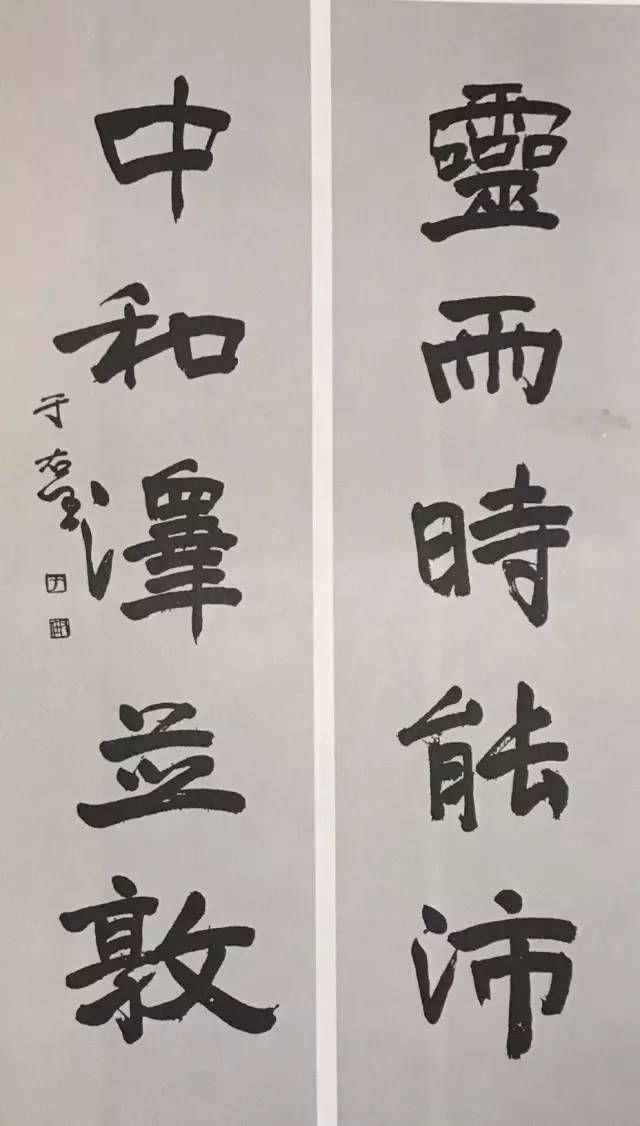 靈雨時能沛
中和澤並敦
于右任